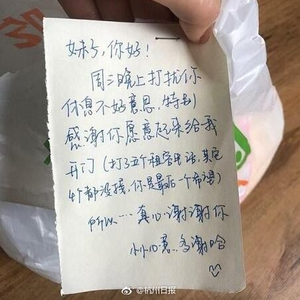 妹子，你好！
周二晚上打扰你
休息不好意思，特别
感谢你愿意起来给我
开门（打了五个租客电话，其他
4个都没接，你是最后一个希望）
所以……真心谢谢你
小小心意，多谢哈
@杭州日报